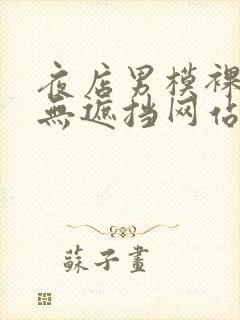 夜店男模裸
無遮挡网佔
蘇子畫